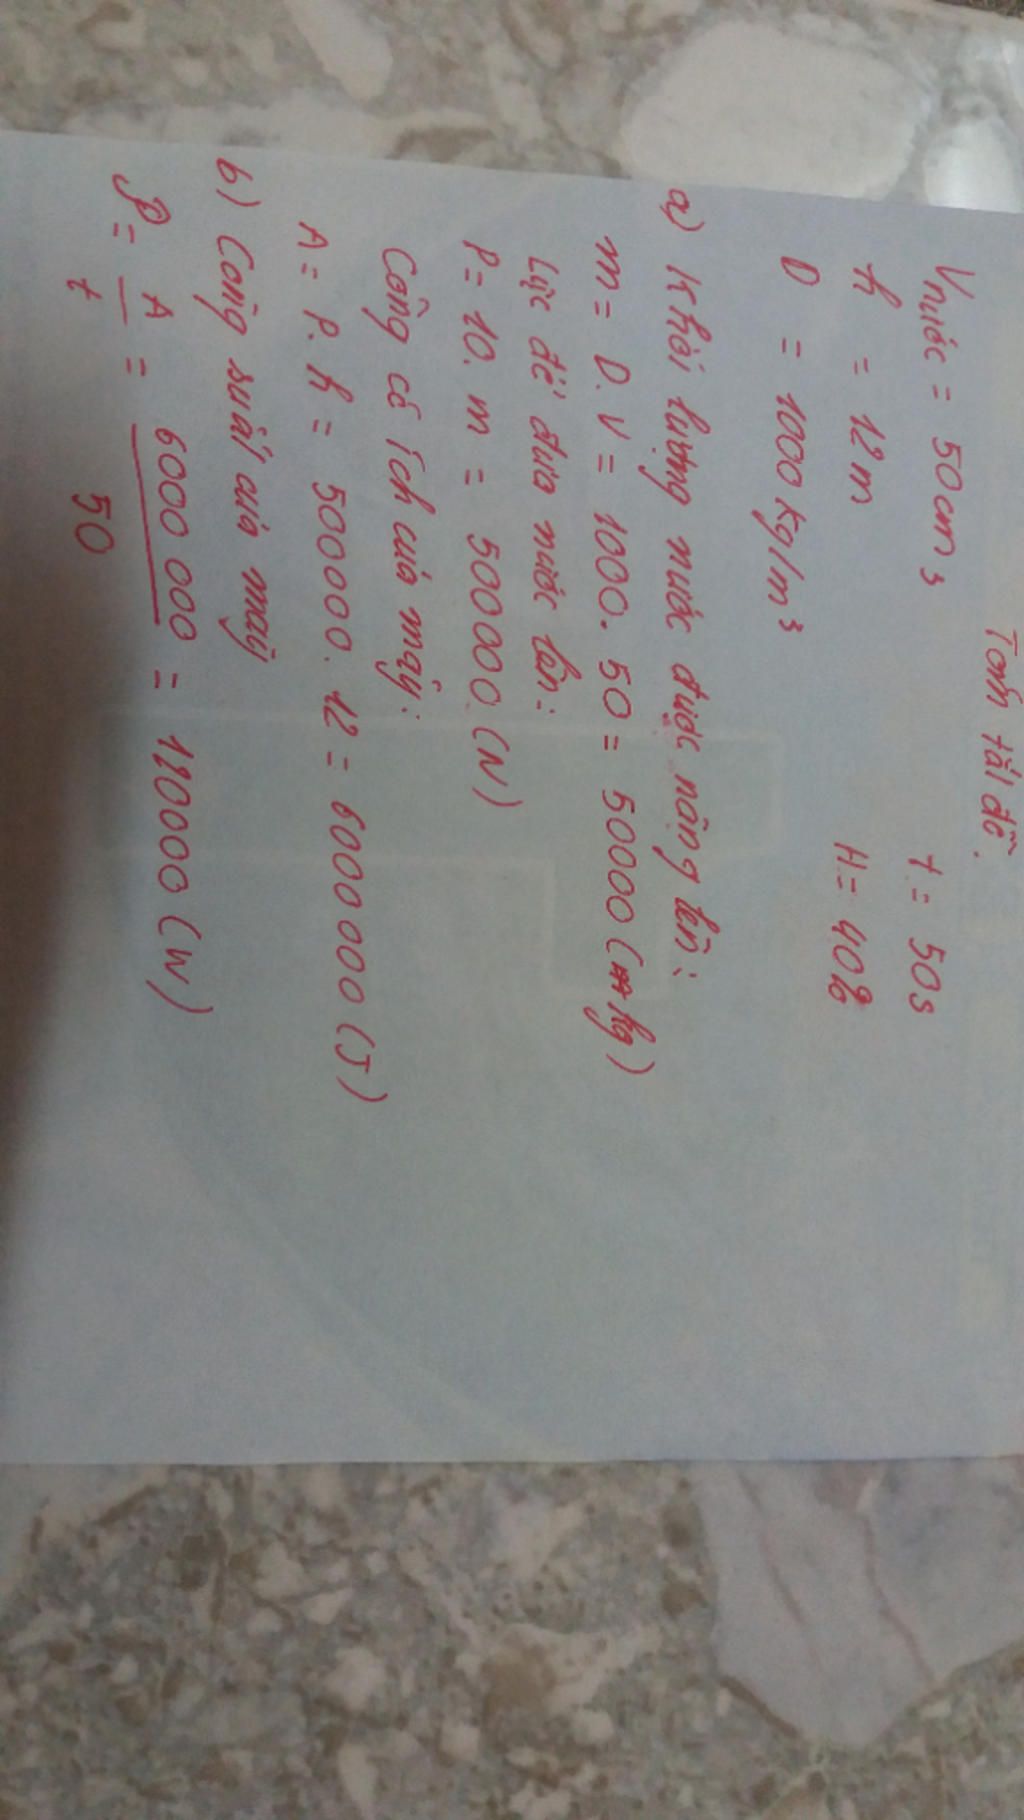 Tónh tắt đề.
Vnước = 50cm3 t = 50s
h = 12m H = 40%
D = 1000kg/m³
a) Khối lượng nước được nâng lên:
m = D.V = 1000. 50 = 50000 (kg)
Lực để đưa nước lên:
P = 10. m = 500000 (N)
Công có ích của máy:
A = P. h = 500000. 12 = 6000 000 (J)
b) Công suất của máy
P = A/t = 6000 000/50 = 120000 (W)